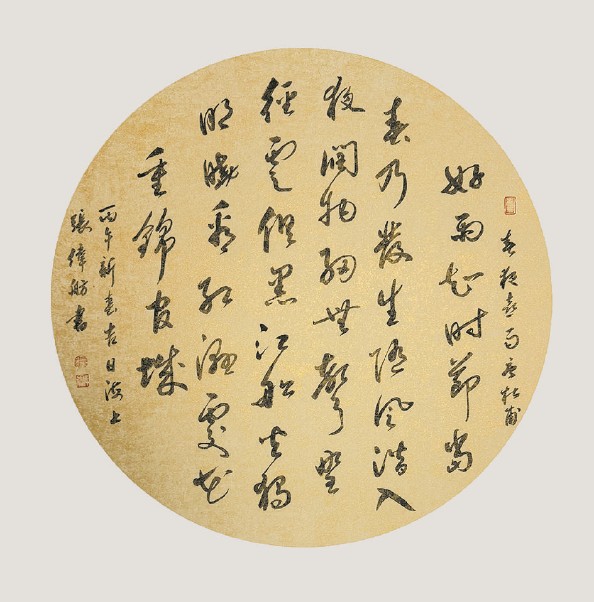 春夜喜雨唐杜甫
好雨知時節當
春乃發生隨風潛入
夜潤物細無聲野
徑雲俱黑江船火獨
明曉看紅濕處花
重錦官城
丙午新春吉日海上
張偉舫書